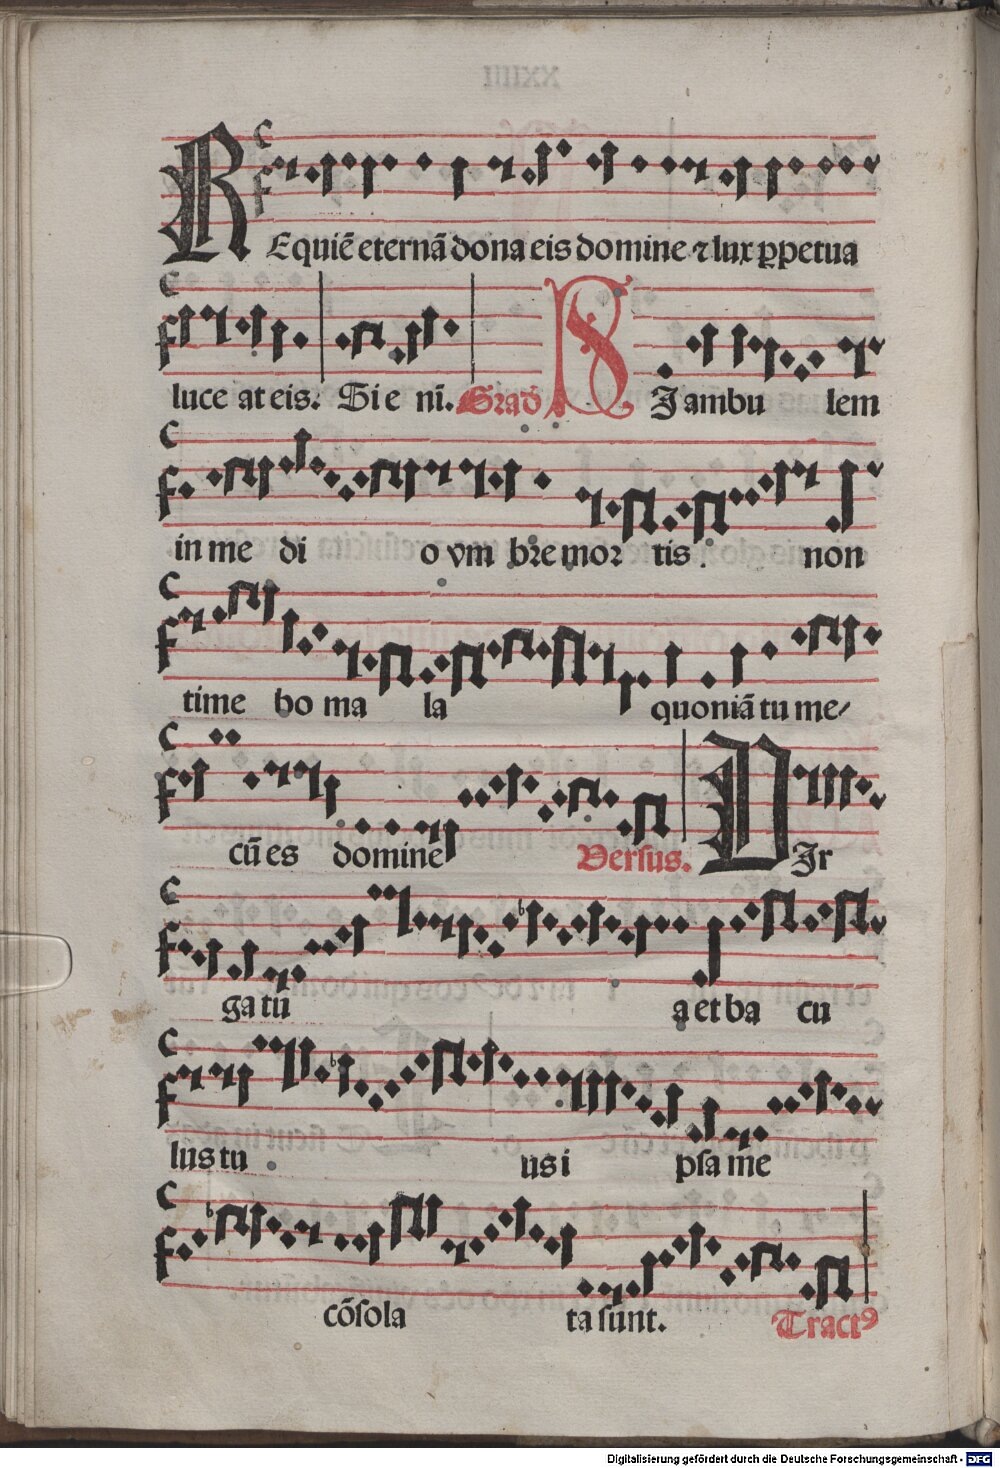 REquiē eternā dona eis domine ⁊ lux ꝑpetua
luce at eis. Si e ni. Grad᷎ SI ambu lem
in me di o vm bre mor tis . non
time bo ma la quoniā tu me/
cū es domine Versus. VIr
ga tu a et ba cu
lus tu us i psa me
cōsola ta sunt. Tractꝰ
Digitalisierung gefördert durch die Deutsche Forschungsgemeinschaft - DFG